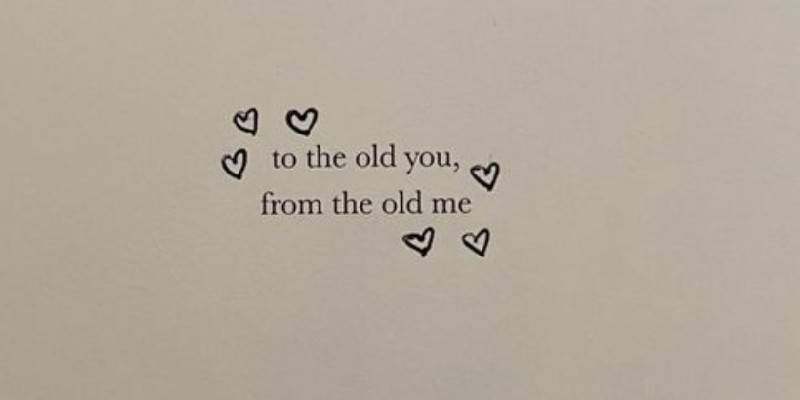 to the old you,
from the old me